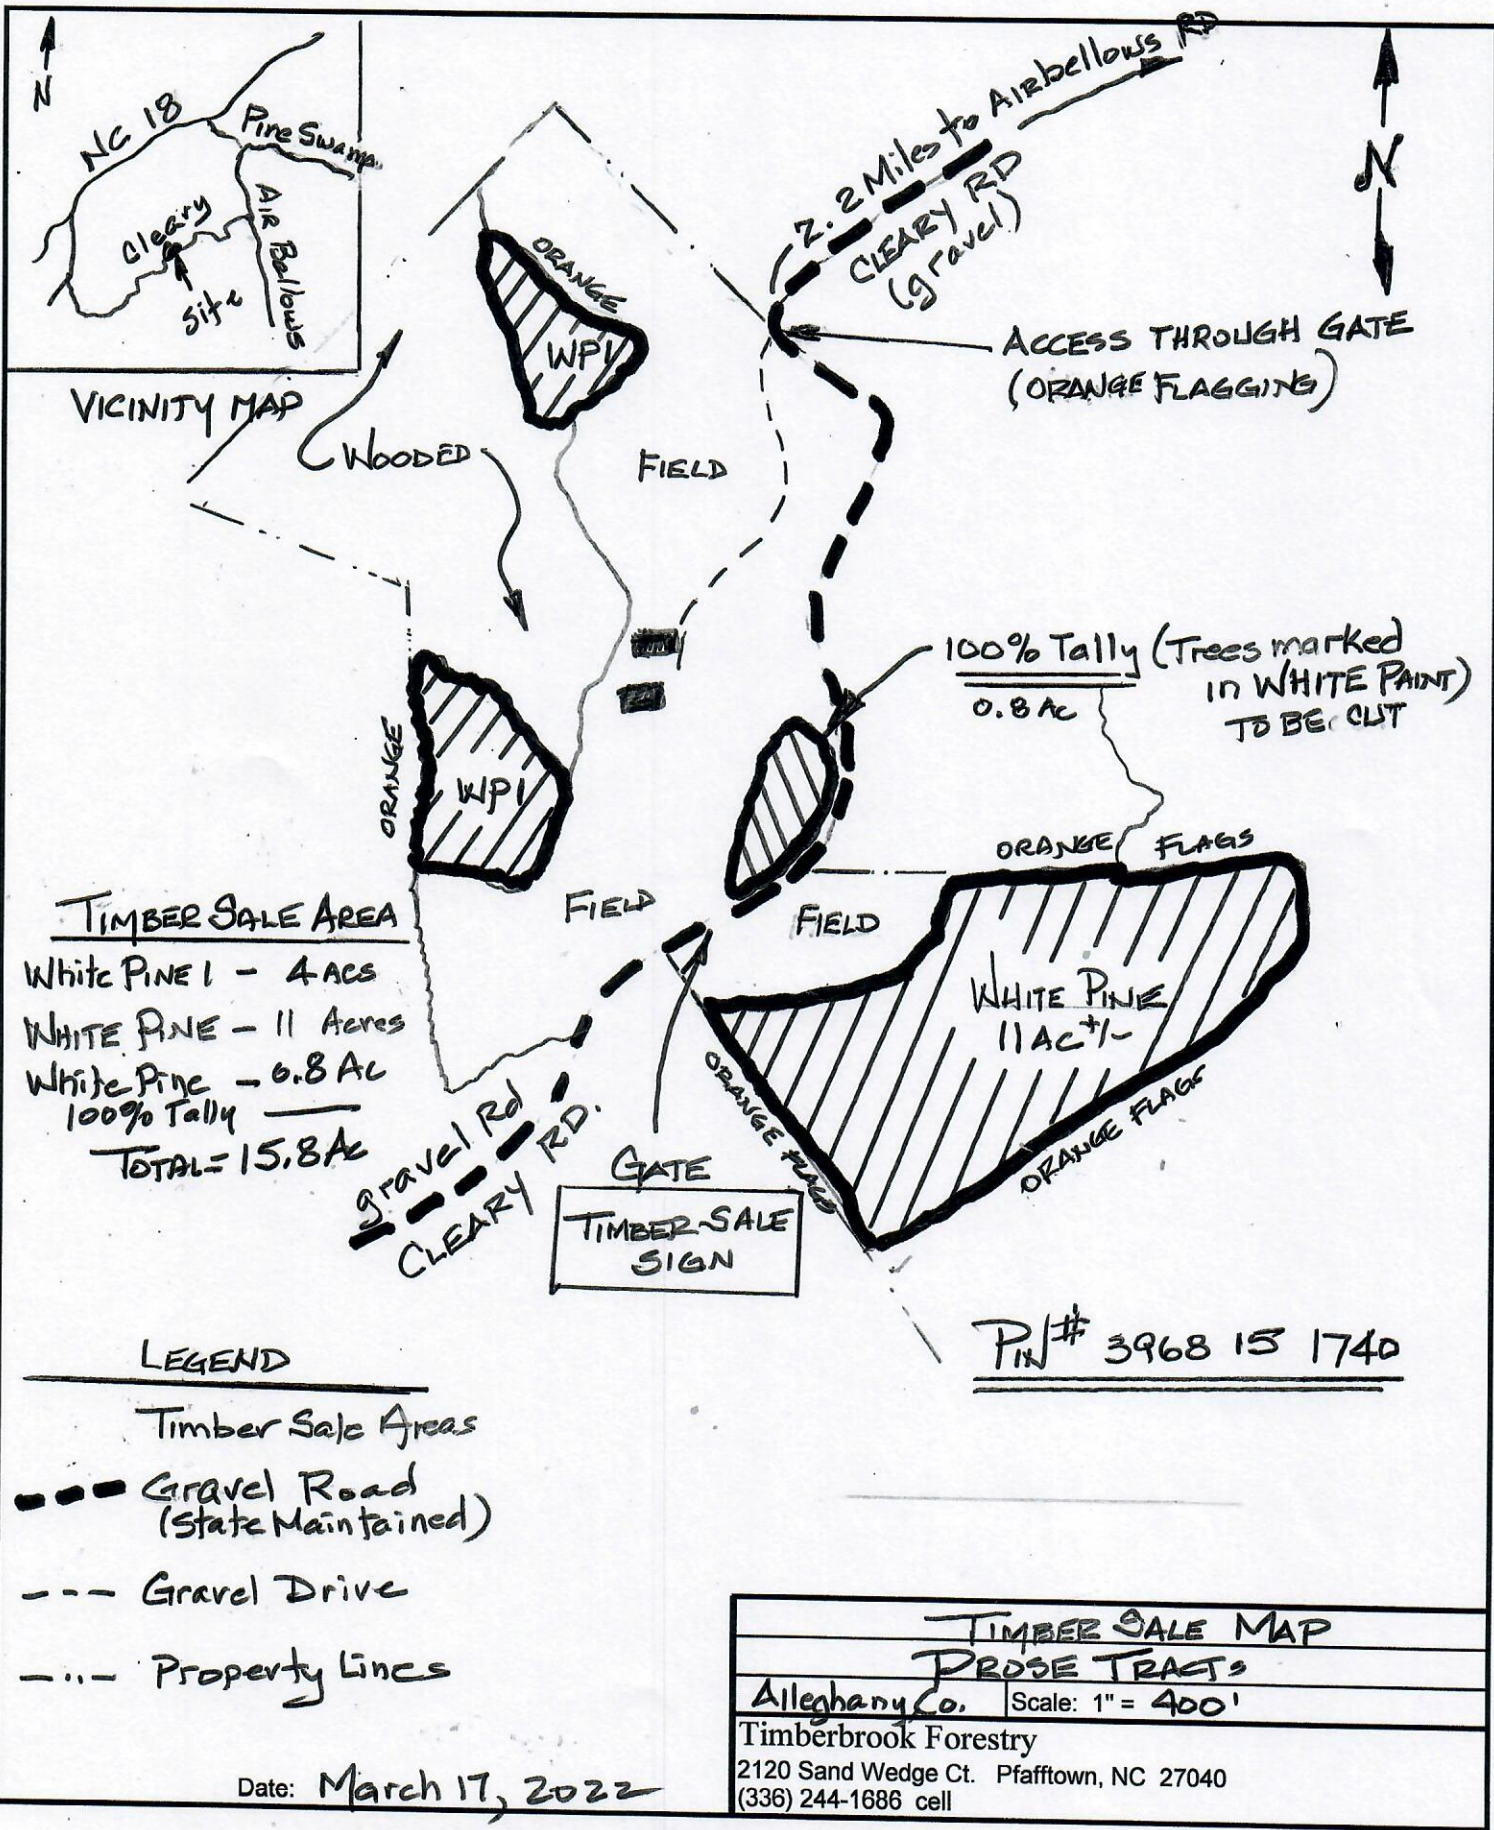 N
NC 18
Pine Swamp
Cleary
Air Bellows
Site
VICINITY MAP
2.2 Miles to Airbellows RD
CLEARY RD
(gravel)
N
ORANGE
WP1
ACCESS THROUGH GATE
(ORANGE FLAGGING)
WOODED
FIELD
100% Tally (Trees marked
in WHITE PAINT)
0.8 Ac
TO BE CUT
ORANGE
WP1
ORANGE FLAGS
FIELD
FIELD
TIMBER SALE AREA
White PINE 1 - 4 Acs
WHITE PINE - 11 Acres
White Pine - 0.8 Ac
100% Tally
TOTAL = 15.8 Ac
WHITE PINE
11 Ac +/-
ORANGE FLAGS
ORANGE FLAGS
gravel Rd
CLEARY RD.
GATE
TIMBER SALE
SIGN
PIN# 3968 15 1740
LEGEND
Timber Sale Areas
Gravel Road
(State Maintained)
Gravel Drive
Property Lines
Date: March 17, 2022
TIMBER SALE MAP
PROSE TRACTS
Alleghany Co. Scale: 1" = 400'
Timberbrook Forestry
2120 Sand Wedge Ct. Pfafftown, NC 27040
(336) 244-1686 cell